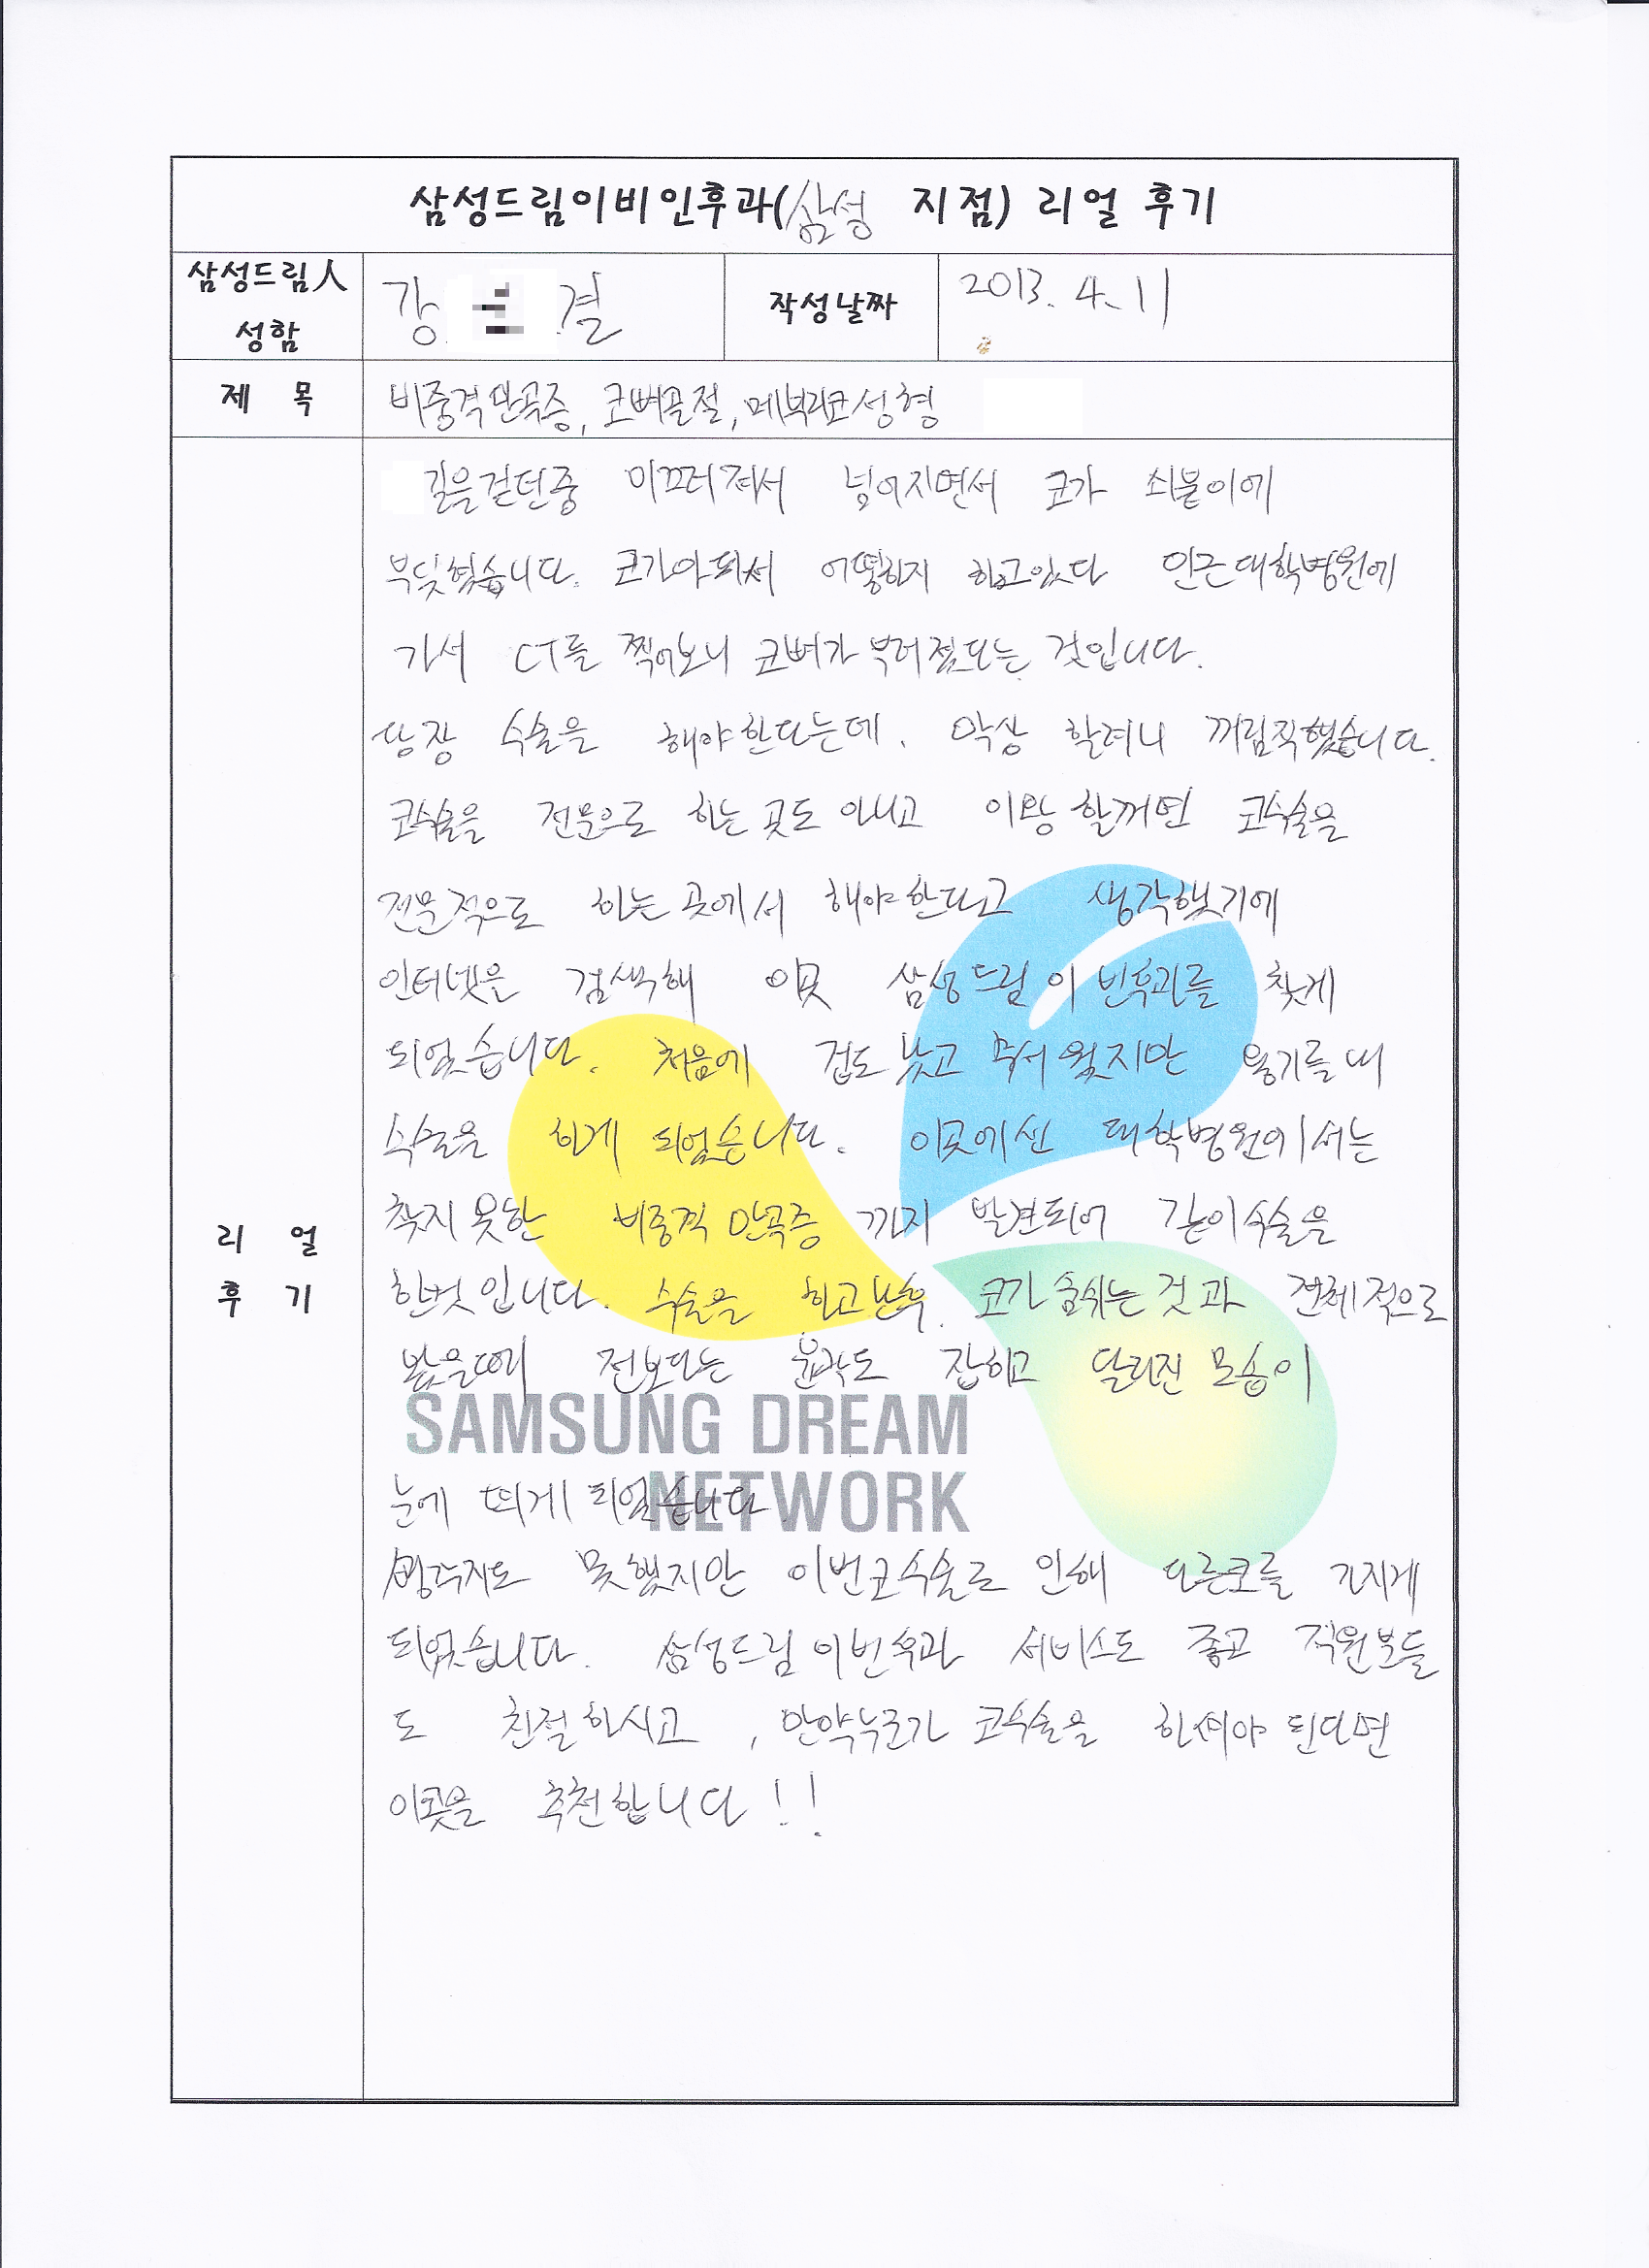 삼성드림이비인후과(삼성 지점) 리얼 후기
삼성드림人 성함 강 결 작성날짜 2013. 4. 11
제 목 비중격만곡증, 코뼈골절, 매부리코성형
길을걷던중 미끄러져서 넘어지면서 코가 쇠붙이에
부딪혔습니다. 코가아파서 어떻하지 하고있다 인근대학병원에
가서 CT를 찍어보니 코뼈가 부러졌다는 것입니다.
당장 수술을 해야한다는데. 막상 할려니 꺼림직했습니다.
코수술을 전문으로 하는 곳도 아니고 이왕 할꺼면 코수술을
전문적으로 하는 곳에서 해야한다고 생각했기에
인터넷을 검색해 이곳 삼성드림 이빈후과를 찾게
되었습니다. 처음에 겁도 났고 무서웠지만 용기를 내
수술을 하게 되었습니다. 이곳에선 대학병원에서는
찾지 못한 비중격 만곡증 까지 발견되어 같이수술을
한벗입니다. 수술을 하고난후. 코가 숨쉬는 것과 전체적으로
봤을때 전보다는 윤곽도 잡히고 달라진 모습이
SAMSUNG DREAM
NETWORK
눈에 띄게 되었습니다.
생각지도 못했지만 이번코수술로 인해 다른코를 가지게
되었습니다. 삼성드림 이빈후과 서비스도 좋고 직원분들
도 친절하시고, 만약누군가 코수술을 하셔야 된다면
이곳을 추천합니다!!
리 얼
후 기